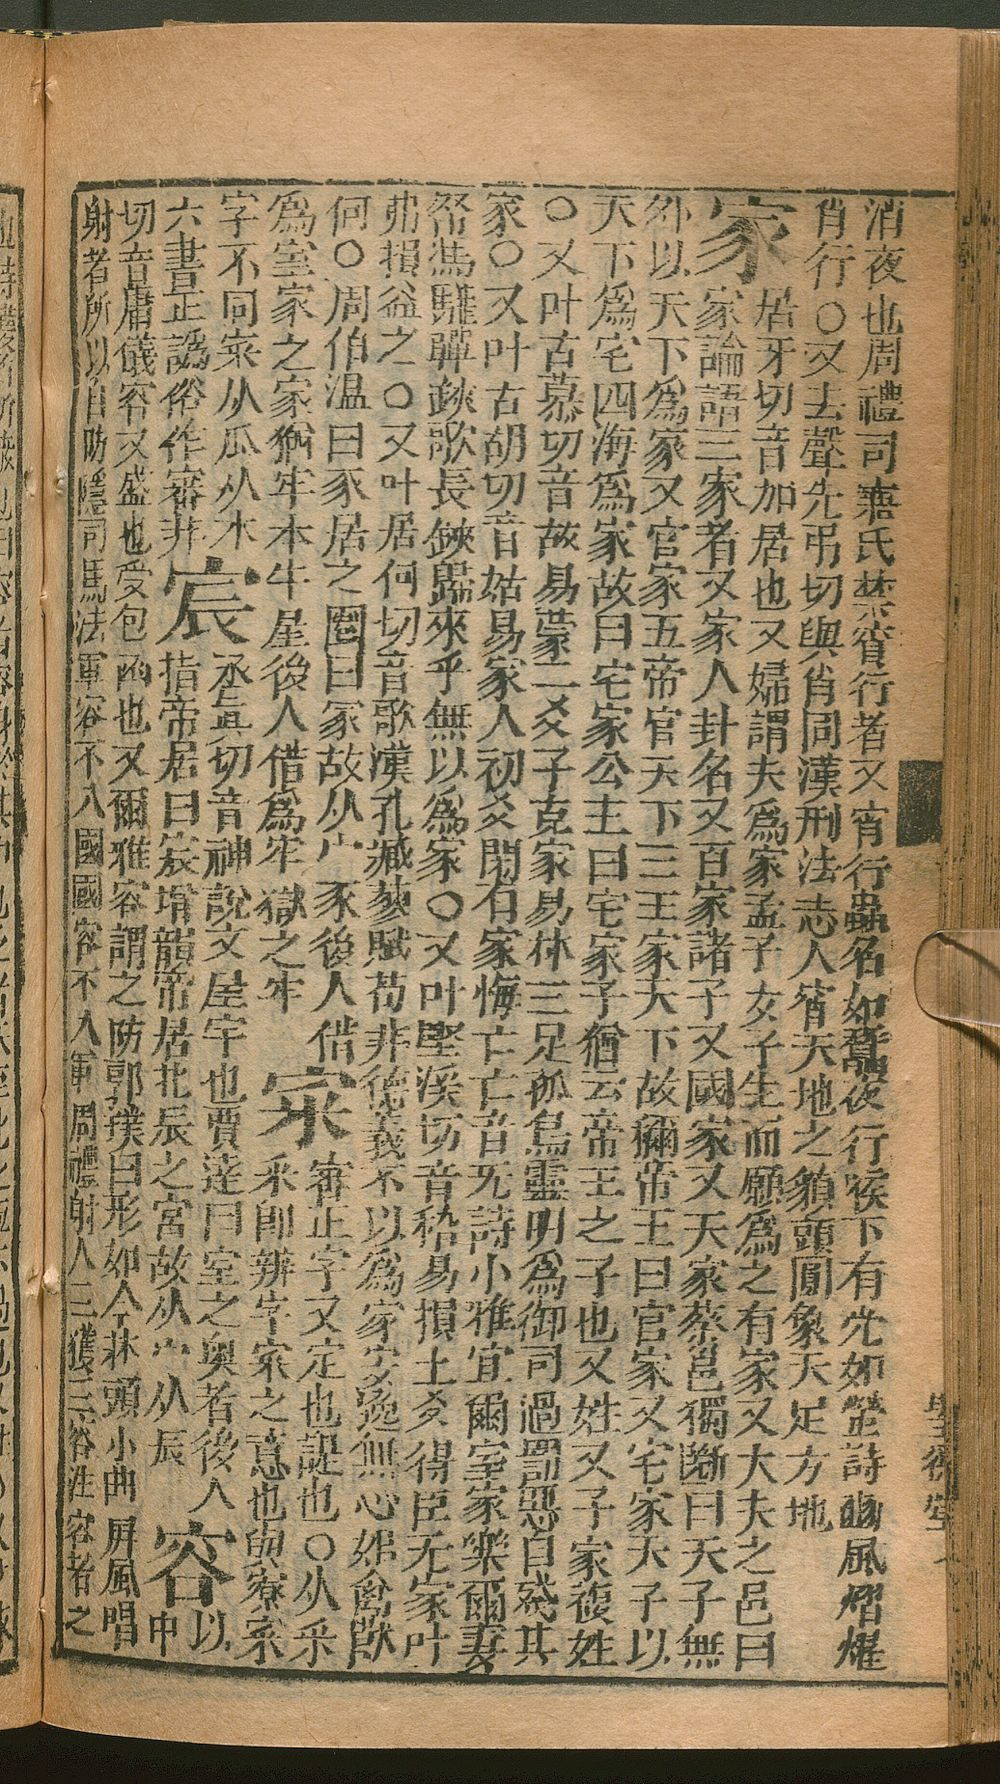 消夜也周禮司寤氏禁宵行者又宵行蟲名如蠶夜行喉下有光如螢詩豳風熠燿
宵行○又去聲先弔切與肖同漢刑法志人宵天地之貌頭圓象天足方地
家
居牙切音加居也又婦謂夫為家孟子女子生而願為之有家又大夫之邑曰
家論語三家者又家人卦名又百家諸子又國家又天家蔡邕獨斷曰天子無
外以天下為家又官家五帝官天下三王家天下故稱帝王曰官家又宅家天子以
天下為宅四海為家故曰宅家公主曰宅家子猶云帝王之子也又姓又子家複姓
○又叶古慕切音故易蒙二爻子克家易林三足孤烏靈明為御司過罰惡自殘其
家○又叶古胡切音姑易家人初爻閑有家悔亡亡音无詩小雅宜爾室家樂爾妻
帑馮驩彈鋏歌長鋏歸來乎無以為家○又叶堅溪切音稽易損上爻得臣无家叶
弗損益之○又叶居何切音歌漢孔臧蓼賦苟非德義不以為家安逸無心如禽獸
何○周伯溫曰豕居之圈曰家故从宀豕後人借
為室家之家猶牢本牛屋後人借為牢獄之牢
宷
審正字又定也諟也○从釆
釆卽辨字宷之意也與寮寀
字不同寀从瓜从木
六書正譌俗作審非
宸
丞眞切音神說文屋宇也賈逵曰室之奥者後人
指帝居曰宸壻龍帝居北辰之宮故从宀从辰
容
以
中
切音庸儀容又盛也受包函也又爾雅容謂之防郭璞曰形如今牀頭小曲屏風唱
射者所以自防隱司馬法軍容不入國國容不入軍周禮射人三獲三容注容者之